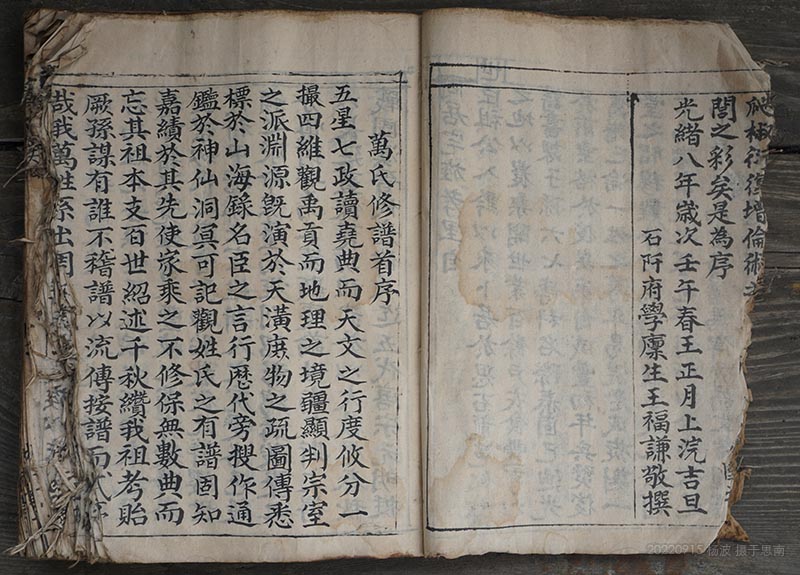 衍復增倫術
閭之彩矣是為序
光緒八年歲次壬午春王正月上浣吉旦
石阡府學廩生王福謙敬撰
萬氏修譜首序
五星七政讀堯典而天文之行度攸分一
撮四維觀禹貢而地理之境疆顯判宗室
之派淵源旣演於天潢庶物之疏圖傳悉
標於山海錄名臣之言行歷代旁搜作通
鑑於神仙洞冥可記觀姓氏之有譜固知
嘉績於其先使家乘之不修保無數典而
忘其祖本支百世紹述千秋纘我祖考貽
厥孫謀有誰不稽譜以流傳按譜而式序
哉我萬姓系出周
20220915 杨波 摄于思南